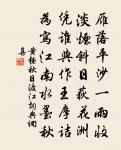 雁落平沙一雨收
淡煙斜日荻花洲
統誰與作王摩詰
為寫江南水墨秋
黃極秋日渡江詞典網
喜